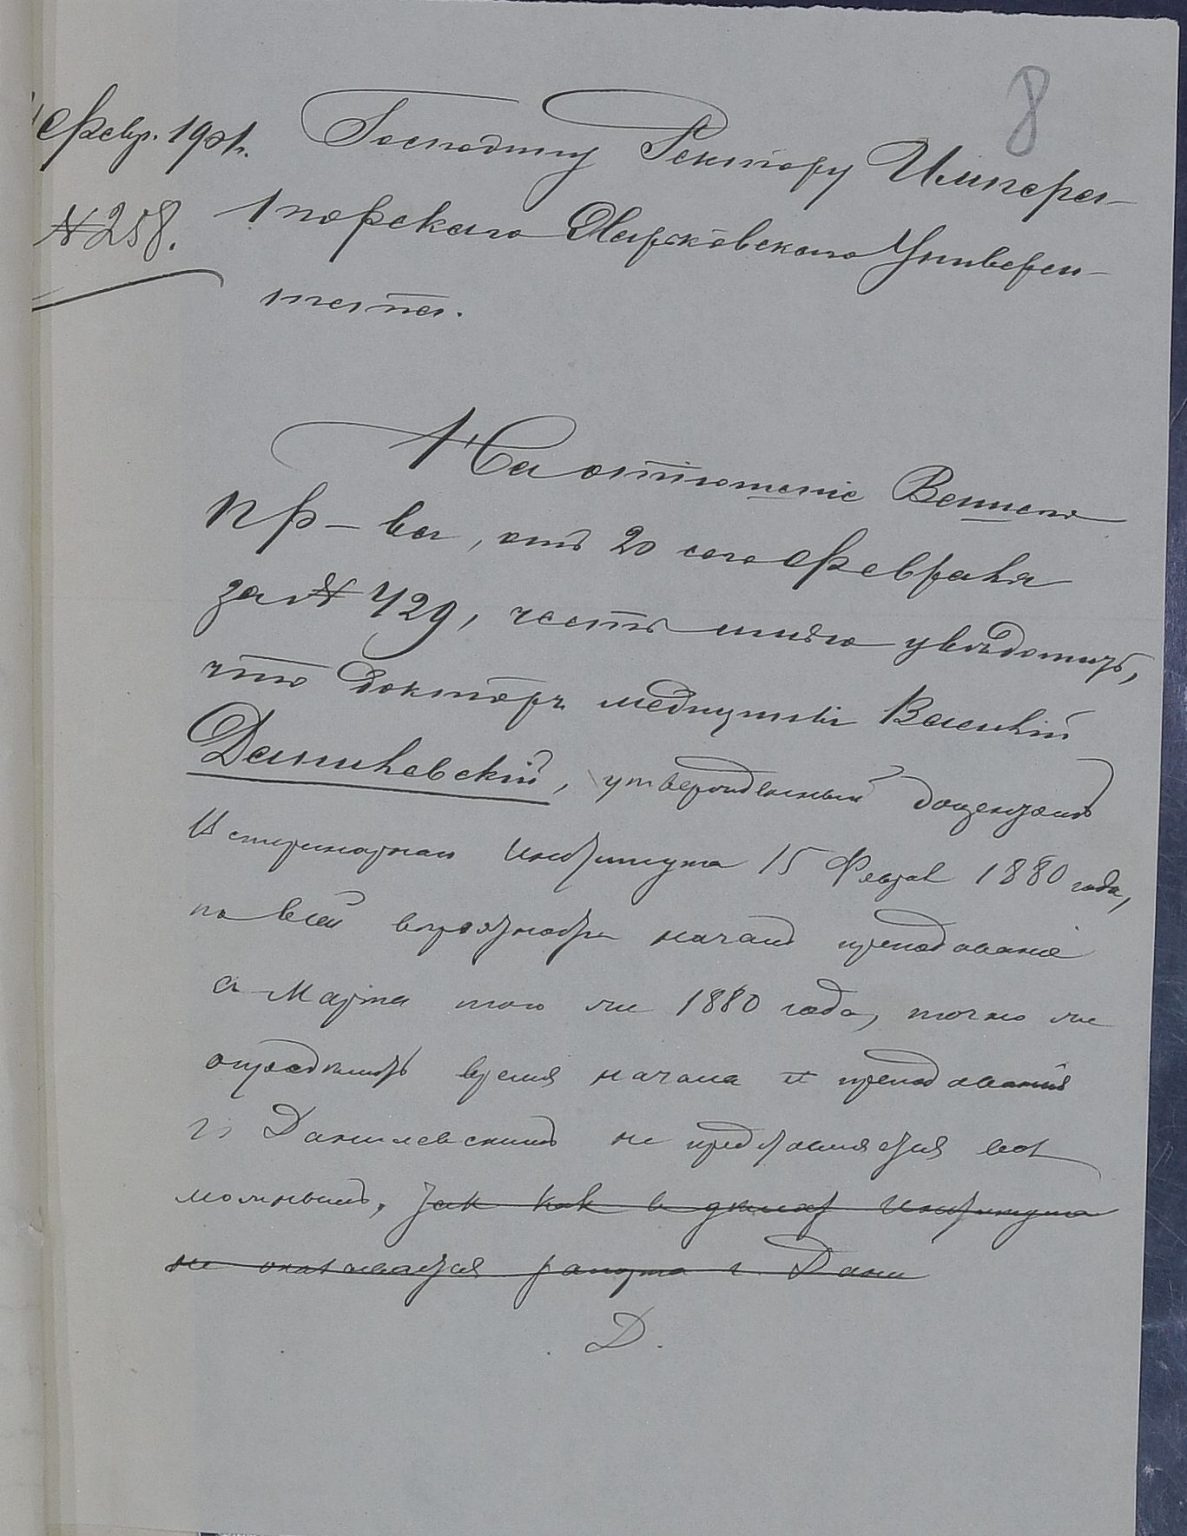 8
Февр. 1901 г. Господину Ректору Импера-
№ 258. торскаго Харьковскаго Универси-
тета.
На отношеніе Вашего
пр-ва, отъ 20 сего Февраля
за № 429, честь имѣю увѣдомить,
что докторъ медицины Василій
Данилевскій, утвержденный доцентомъ
Ветеринарнаго Института 15 Февраля 1880 года,
по всей вѣроятности началъ преподаваніе
съ Марта того же 1880 года, точно же
опредѣлить время начала преподаванія
г. Данилевскимъ не представляется воз
можнымъ, такъ какъ въ дѣлахъ Института
не оказывается рапорта г. Дани
Д.